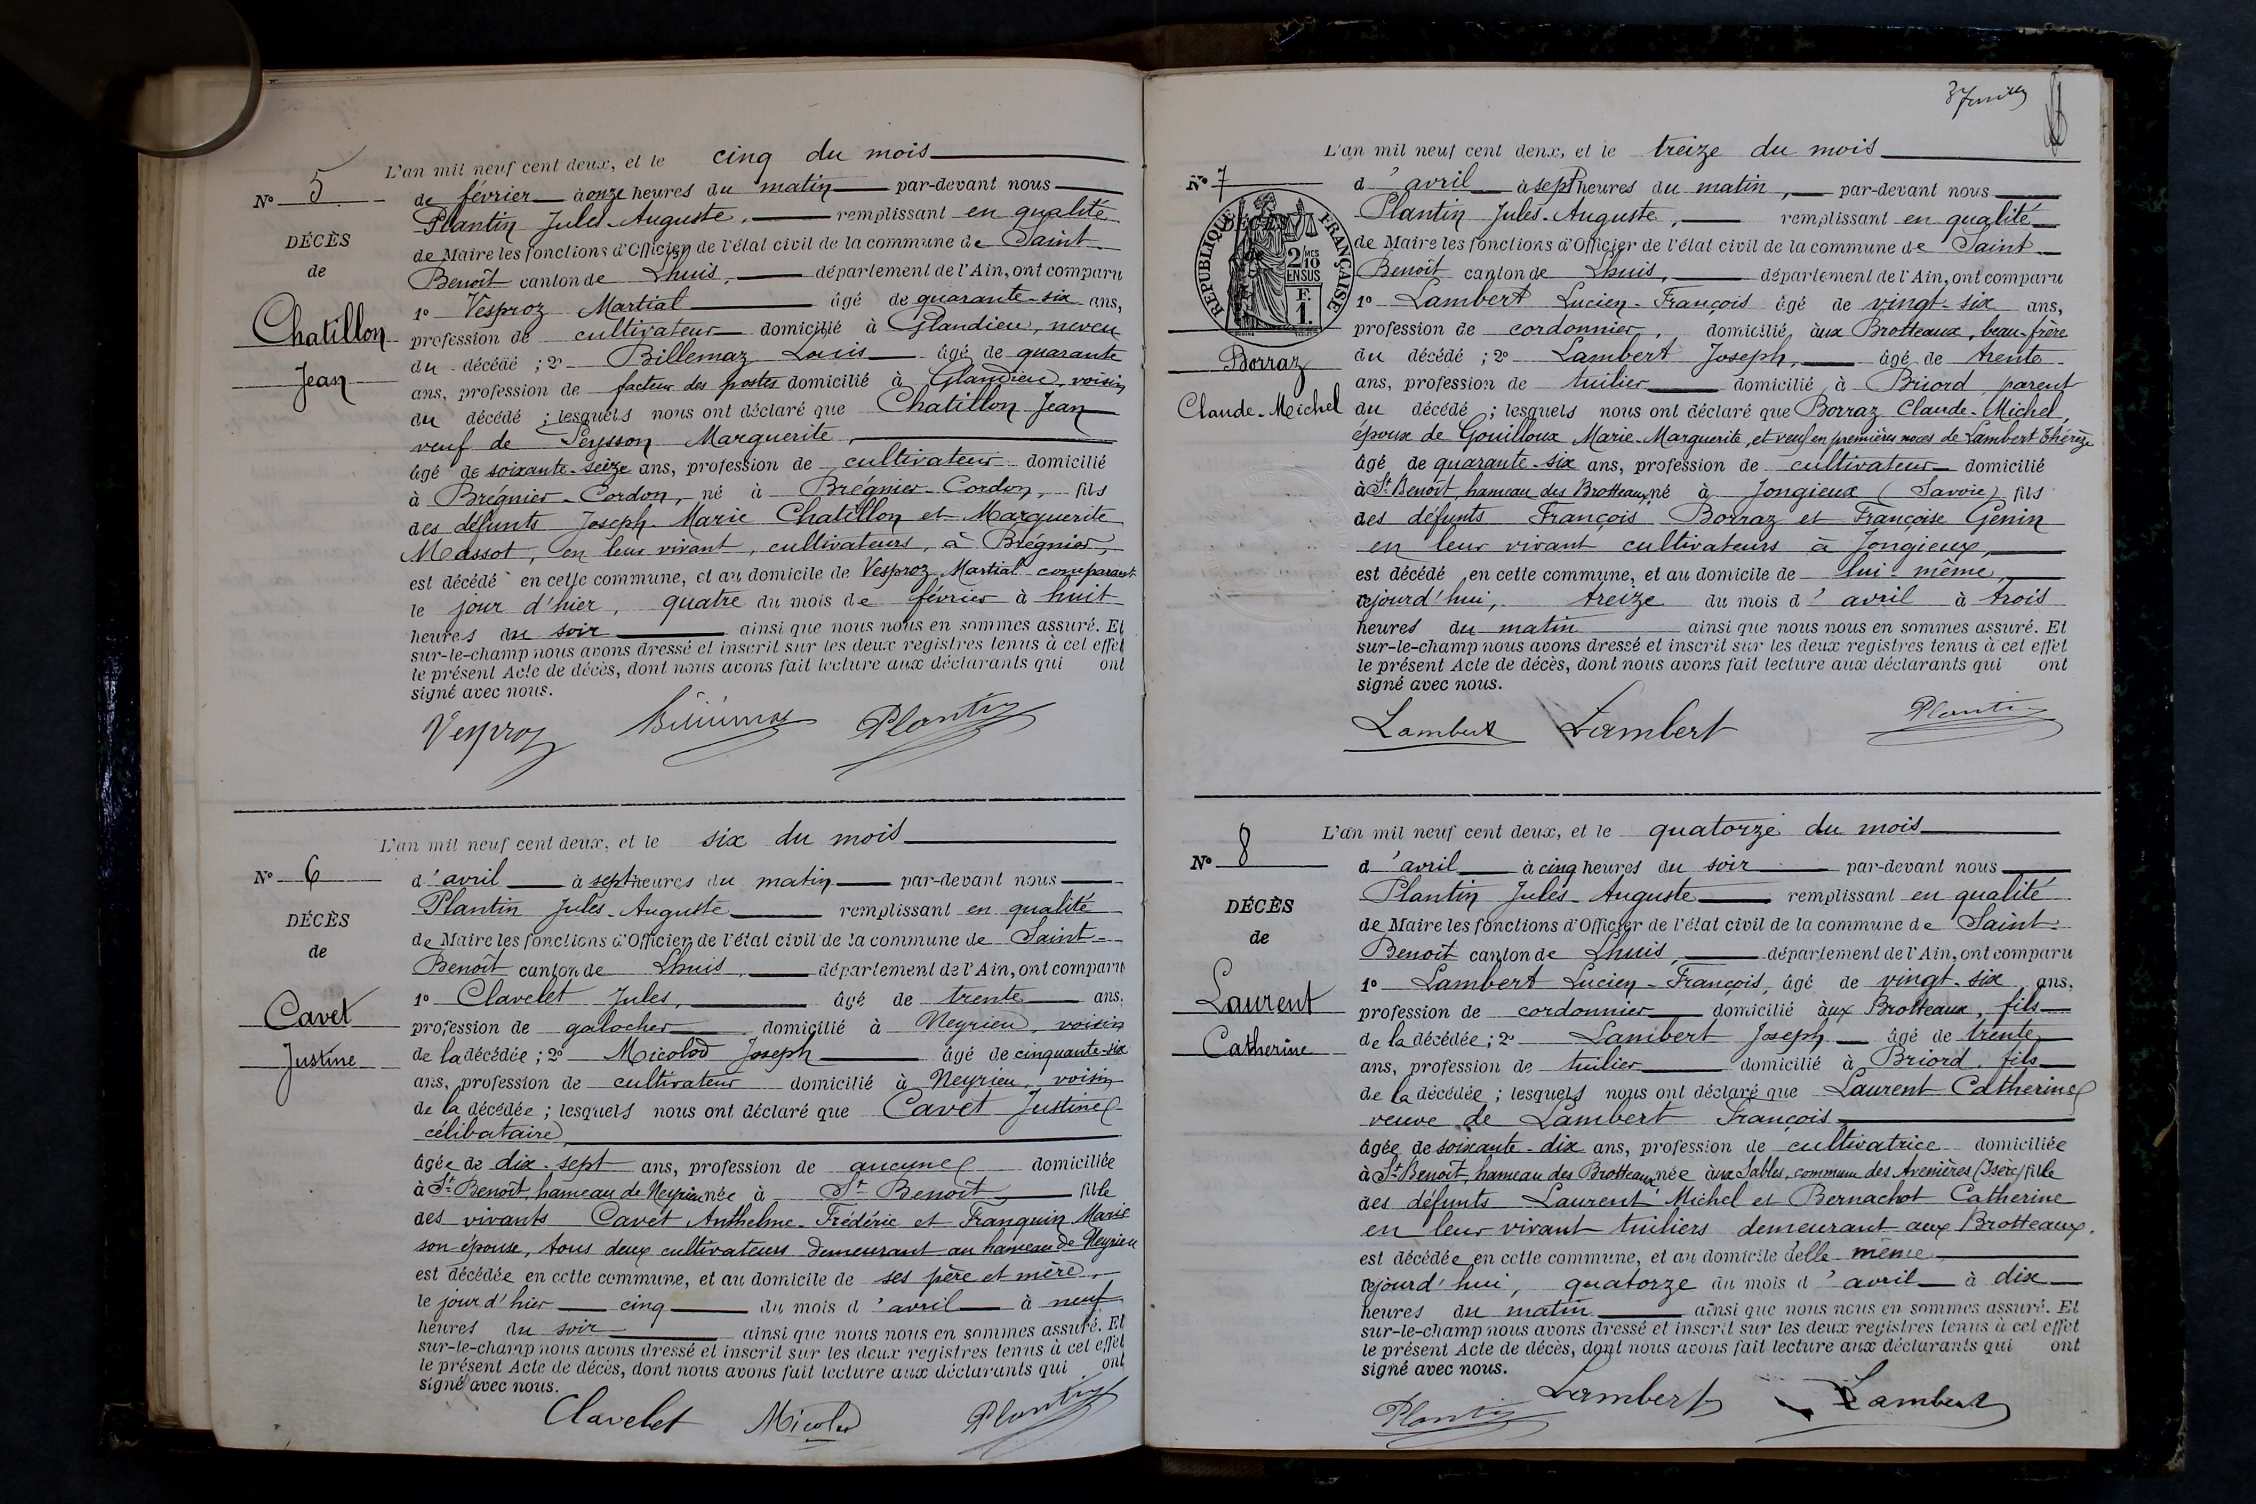 L'an mil neuf cent deux, et le cinq du mois
N° 5
de février à onze heures du matin par-devant nous
Plantin Jules-Auguste, remplissant en qualité
DÉCÈS
de Maire les fonctions d'Officier de l'état civil de la commune de Saint
de
Benoît canton de Lhuis, département de l'Ain, ont comparu
1° Vesproz Martial âgé de quarante-six ans,
Chatillon
profession de cultivateur domicilié à Glandieu, neveu
du décédé ; 2° Billemaz Louis âgé de quarante
Jean
ans, profession de facteur des postes domicilié à Glandieu, voisin
du décédé ; lesquels nous ont déclaré que Chatillon Jean
veuf de Peysson Marguerite,
âgé de soixante-seize ans, profession de cultivateur domicilié
à Brégnier-Cordon, né à Brégnier-Cordon, fils
des défunts Joseph-Marie Chatillon et Marguerite
Massot, en leur vivant, cultivateurs, à Brégnier,
est décédé en cette commune, et au domicile de Vesproz Martial comparant
le jour d'hier, quatre du mois de février à huit
heures du soir ainsi que nous nous en sommes assuré. Et
sur-le-champ nous avons dressé et inscrit sur les deux registres tenus à cet effet
le présent Acte de décès, dont nous avons fait lecture aux déclarants qui ont
signé avec nous.
Vesproz Billemaz Plantin
L'an mil neuf cent deux, et le six du mois
N° 6
d'avril à sept heures du matin par-devant nous
Plantin Jules-Auguste remplissant en qualité
DÉCÈS
de Maire les fonctions d'Officier de l'état civil de la commune de Saint
de
Benoît canton de Lhuis, département de l'Ain, ont comparu
1° Clavelet Jules, âgé de trente ans,
Cavet
profession de galocher domicilié à Neyrieu, voisin
Justine
de la décédée ; 2° Micolod Joseph âgé de cinquante-six
ans, profession de cultivateur domicilié à Neyrieu, voisin
de la décédée ; lesquels nous ont déclaré que Cavet Justine
célibataire,
âgée de dix-sept ans, profession de aucune domiciliée
à St Benoît, hameau de Neyrieu née à St Benoît, fille
des vivants Cavet Anthelme-Frédéric et Franquin Marie
son épouse, tous deux cultivateurs demeurant au hameau de Neyrieu
est décédée en cette commune, et au domicile de ses père et mère,
le jour d'hier cinq du mois d'avril à neuf
heures du soir ainsi que nous nous en sommes assuré. Et
sur-le-champ nous avons dressé et inscrit sur les deux registres tenus à cet effet
le présent Acte de décès, dont nous avons fait lecture aux déclarants qui ont
signé avec nous.
Clavelet Micolod Plantin
L'an mil neuf cent deux, et le treize du mois
N° 7
d'avril à sept heures du matin, par-devant nous
Plantin Jules-Auguste, remplissant en qualité
DÉCÈS
RÉPUBLIQUE FRANÇAISE
2/10 MES
EN SUS
F.
1.
de Maire les fonctions d'Officier de l'état civil de la commune de Saint
Benoît canton de Lhuis, département de l'Ain, ont comparu
1° Lambert Lucien-François âgé de vingt-six ans,
profession de cordonnier, domicilié aux Brotteaux, beau-frère
Borraz
du décédé ; 2° Lambert Joseph, âgé de trente
ans, profession de tuilier domicilié à Briord, parent
Claude-Michel
du décédé ; lesquels nous ont déclaré que Borraz Claude-Michel,
époux de Gouilloux Marie-Marguerite, et veuf en premières noces de Lambert Thérèze
âgé de quarante-six ans, profession de cultivateur domicilié
à St Benoît, hameau des Brotteaux, né à Jongieux (Savoie) fils
des défunts François Borraz et Françoise Genin
en leur vivant cultivateurs à Jongieux,
est décédé en cette commune, et au domicile de lui-même,
cejourd'hui, treize du mois d'avril à trois
heures du matin ainsi que nous nous en sommes assuré. Et
sur-le-champ nous avons dressé et inscrit sur les deux registres tenus à cet effet
le présent Acte de décès, dont nous avons fait lecture aux déclarants qui ont
signé avec nous.
Lambert Lambert Plantin
L'an mil neuf cent deux, et le quatorze du mois
N° 8
d'avril à cinq heures du soir par-devant nous
Plantin Jules-Auguste remplissant en qualité
DÉCÈS
de Maire les fonctions d'Officier de l'état civil de la commune de Saint
de
Benoît canton de Lhuis, département de l'Ain, ont comparu
1° Lambert Lucien-François, âgé de vingt-six ans,
Laurent
profession de cordonnier domicilié aux Brotteaux, fils
Catherine
de la décédée ; 2° Lambert Joseph âgé de trente
ans, profession de tuilier domicilié à Briord, fils
de la décédée ; lesquels nous ont déclaré que Laurent Catherine
veuve de Lambert François,
âgée de soixante-dix ans, profession de cultivatrice domiciliée
à St Benoît, hameau des Brotteaux née aux Sables, commune des Avenières (Isère) fille
des défunts Laurent Michel et Bernachot Catherine
en leur vivant tuiliers demeurant aux Brotteaux.
est décédée en cette commune, et au domicile d'elle-même
cejourd'hui, quatorze du mois d'avril à dix
heures du matin ainsi que nous nous en sommes assuré. Et
sur-le-champ nous avons dressé et inscrit sur les deux registres tenus à cet effet
le présent Acte de décès, dont nous avons fait lecture aux déclarants qui ont
signé avec nous.
Plantin Lambert Lambert